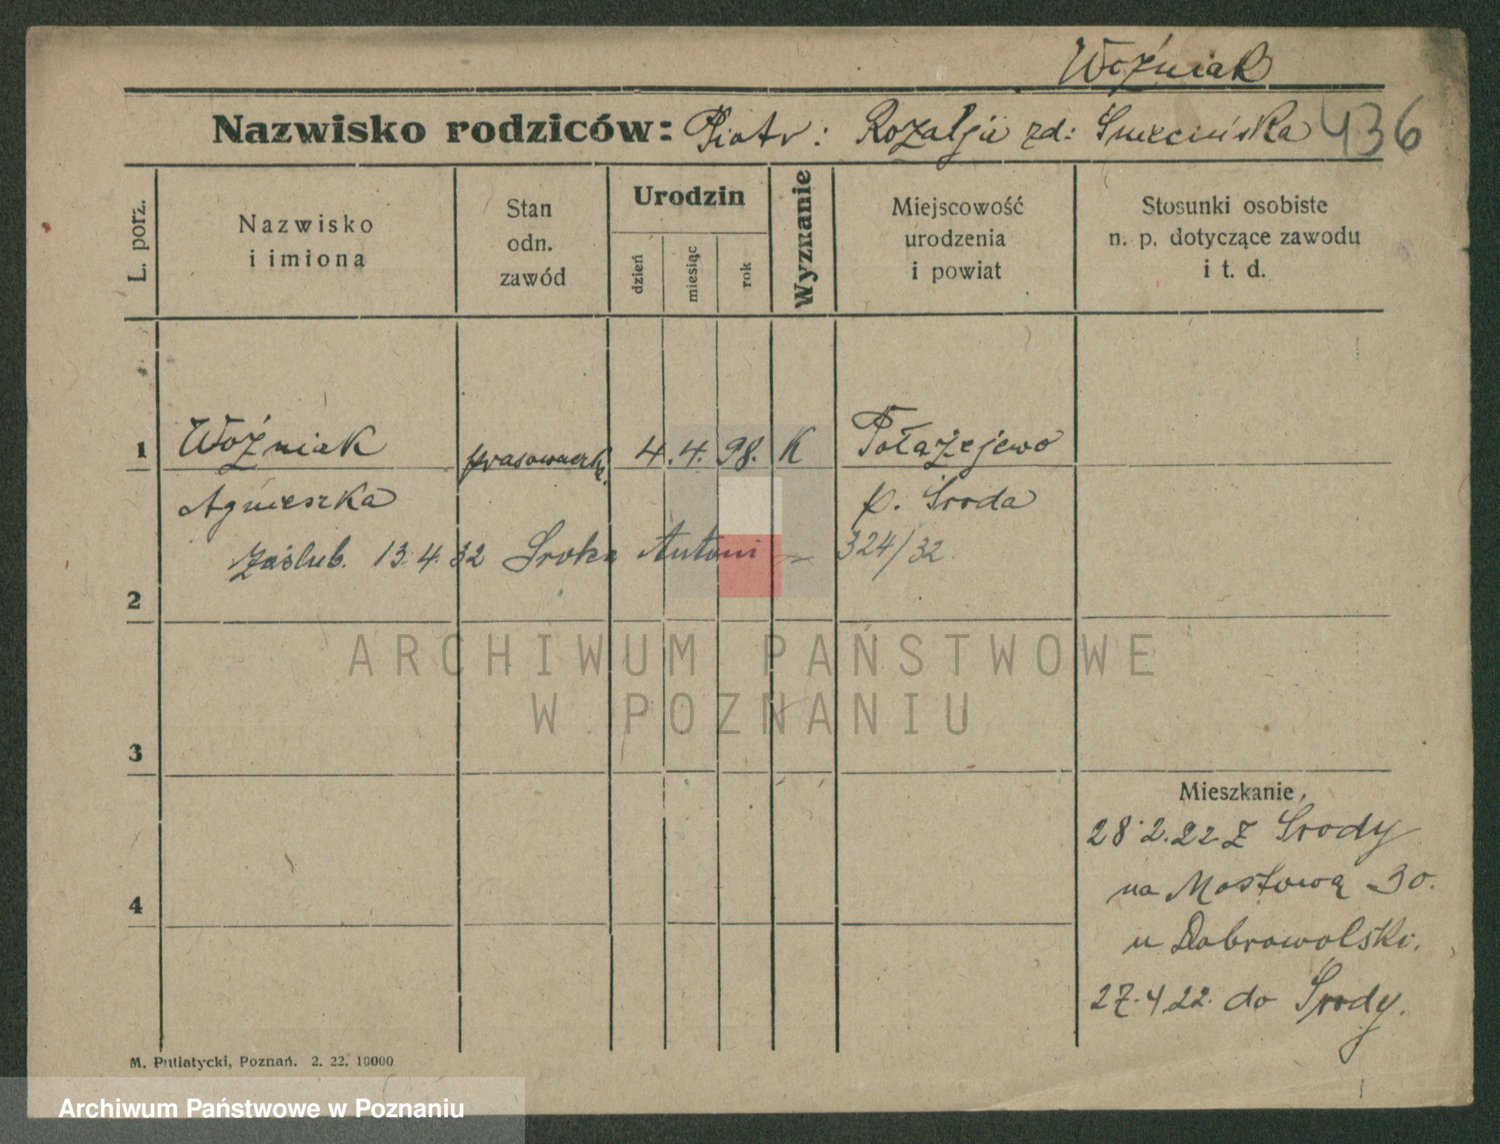 Woźniak
Nazwisko rodziców: Piotr: Rozalja zd: 436
L. porz.
Nazwisko i imiona
Stan odn. zawód
Urodzin
dzień
miesiąc
rok
Wyznanie
Miejscowość urodzenia i powiat
Stosunki osobiste n. p. dotyczące zawodu i t. d.
1 Woźniak prasowaczka 4. 4. 98. K Połażejewo
Agnieszka p. Środa
Zaślub. 13.4.32 Sroka Antoni – 324/32
2
ARCHIWUM PAŃSTWOWE
W POZNANIU
3
Mieszkanie,
28.2.22 z Środy
na Mostową 30.
4
u Dobrowolski.
27.4 22. do Środy.
M. Putiatycki, Poznań. 2. 22. 10000
Archiwum Państwowe w Poznaniu